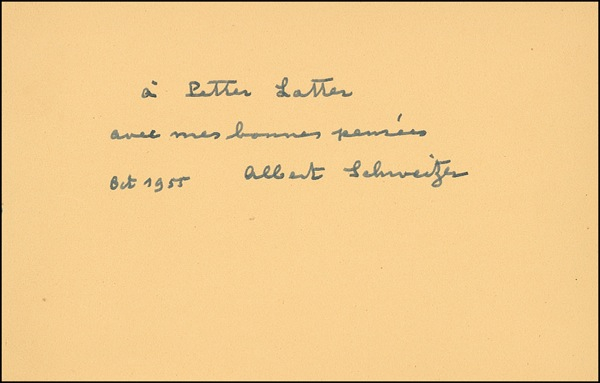 à Petter Latter
avec mes bonnes pensées
Oct 1955 Albert Schweitzer